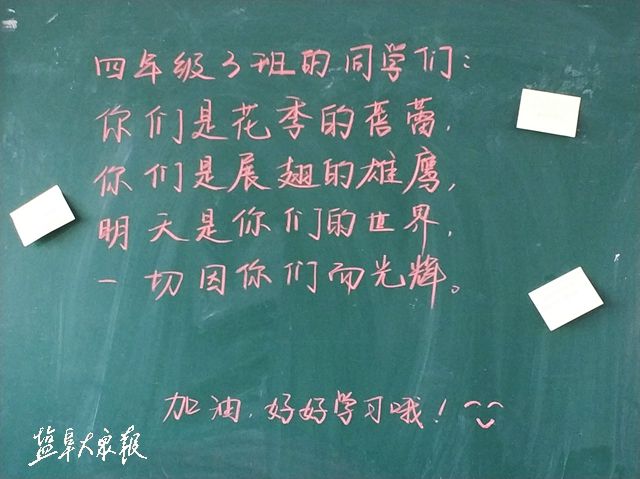 四年级3班的同学们：
你们是花季的蓓蕾，
你们是展翅的雄鹰，
明天是你们的世界，
一切因你们而光辉。
加油，好好学习哦！
盐阜大众报